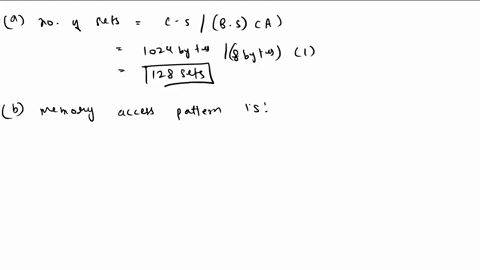 (a) no. of sets = C.S / (B.S) (A)
= 1024 bytes / (8 bytes) (1)
= 128 sets
(b) memory access pattern is: